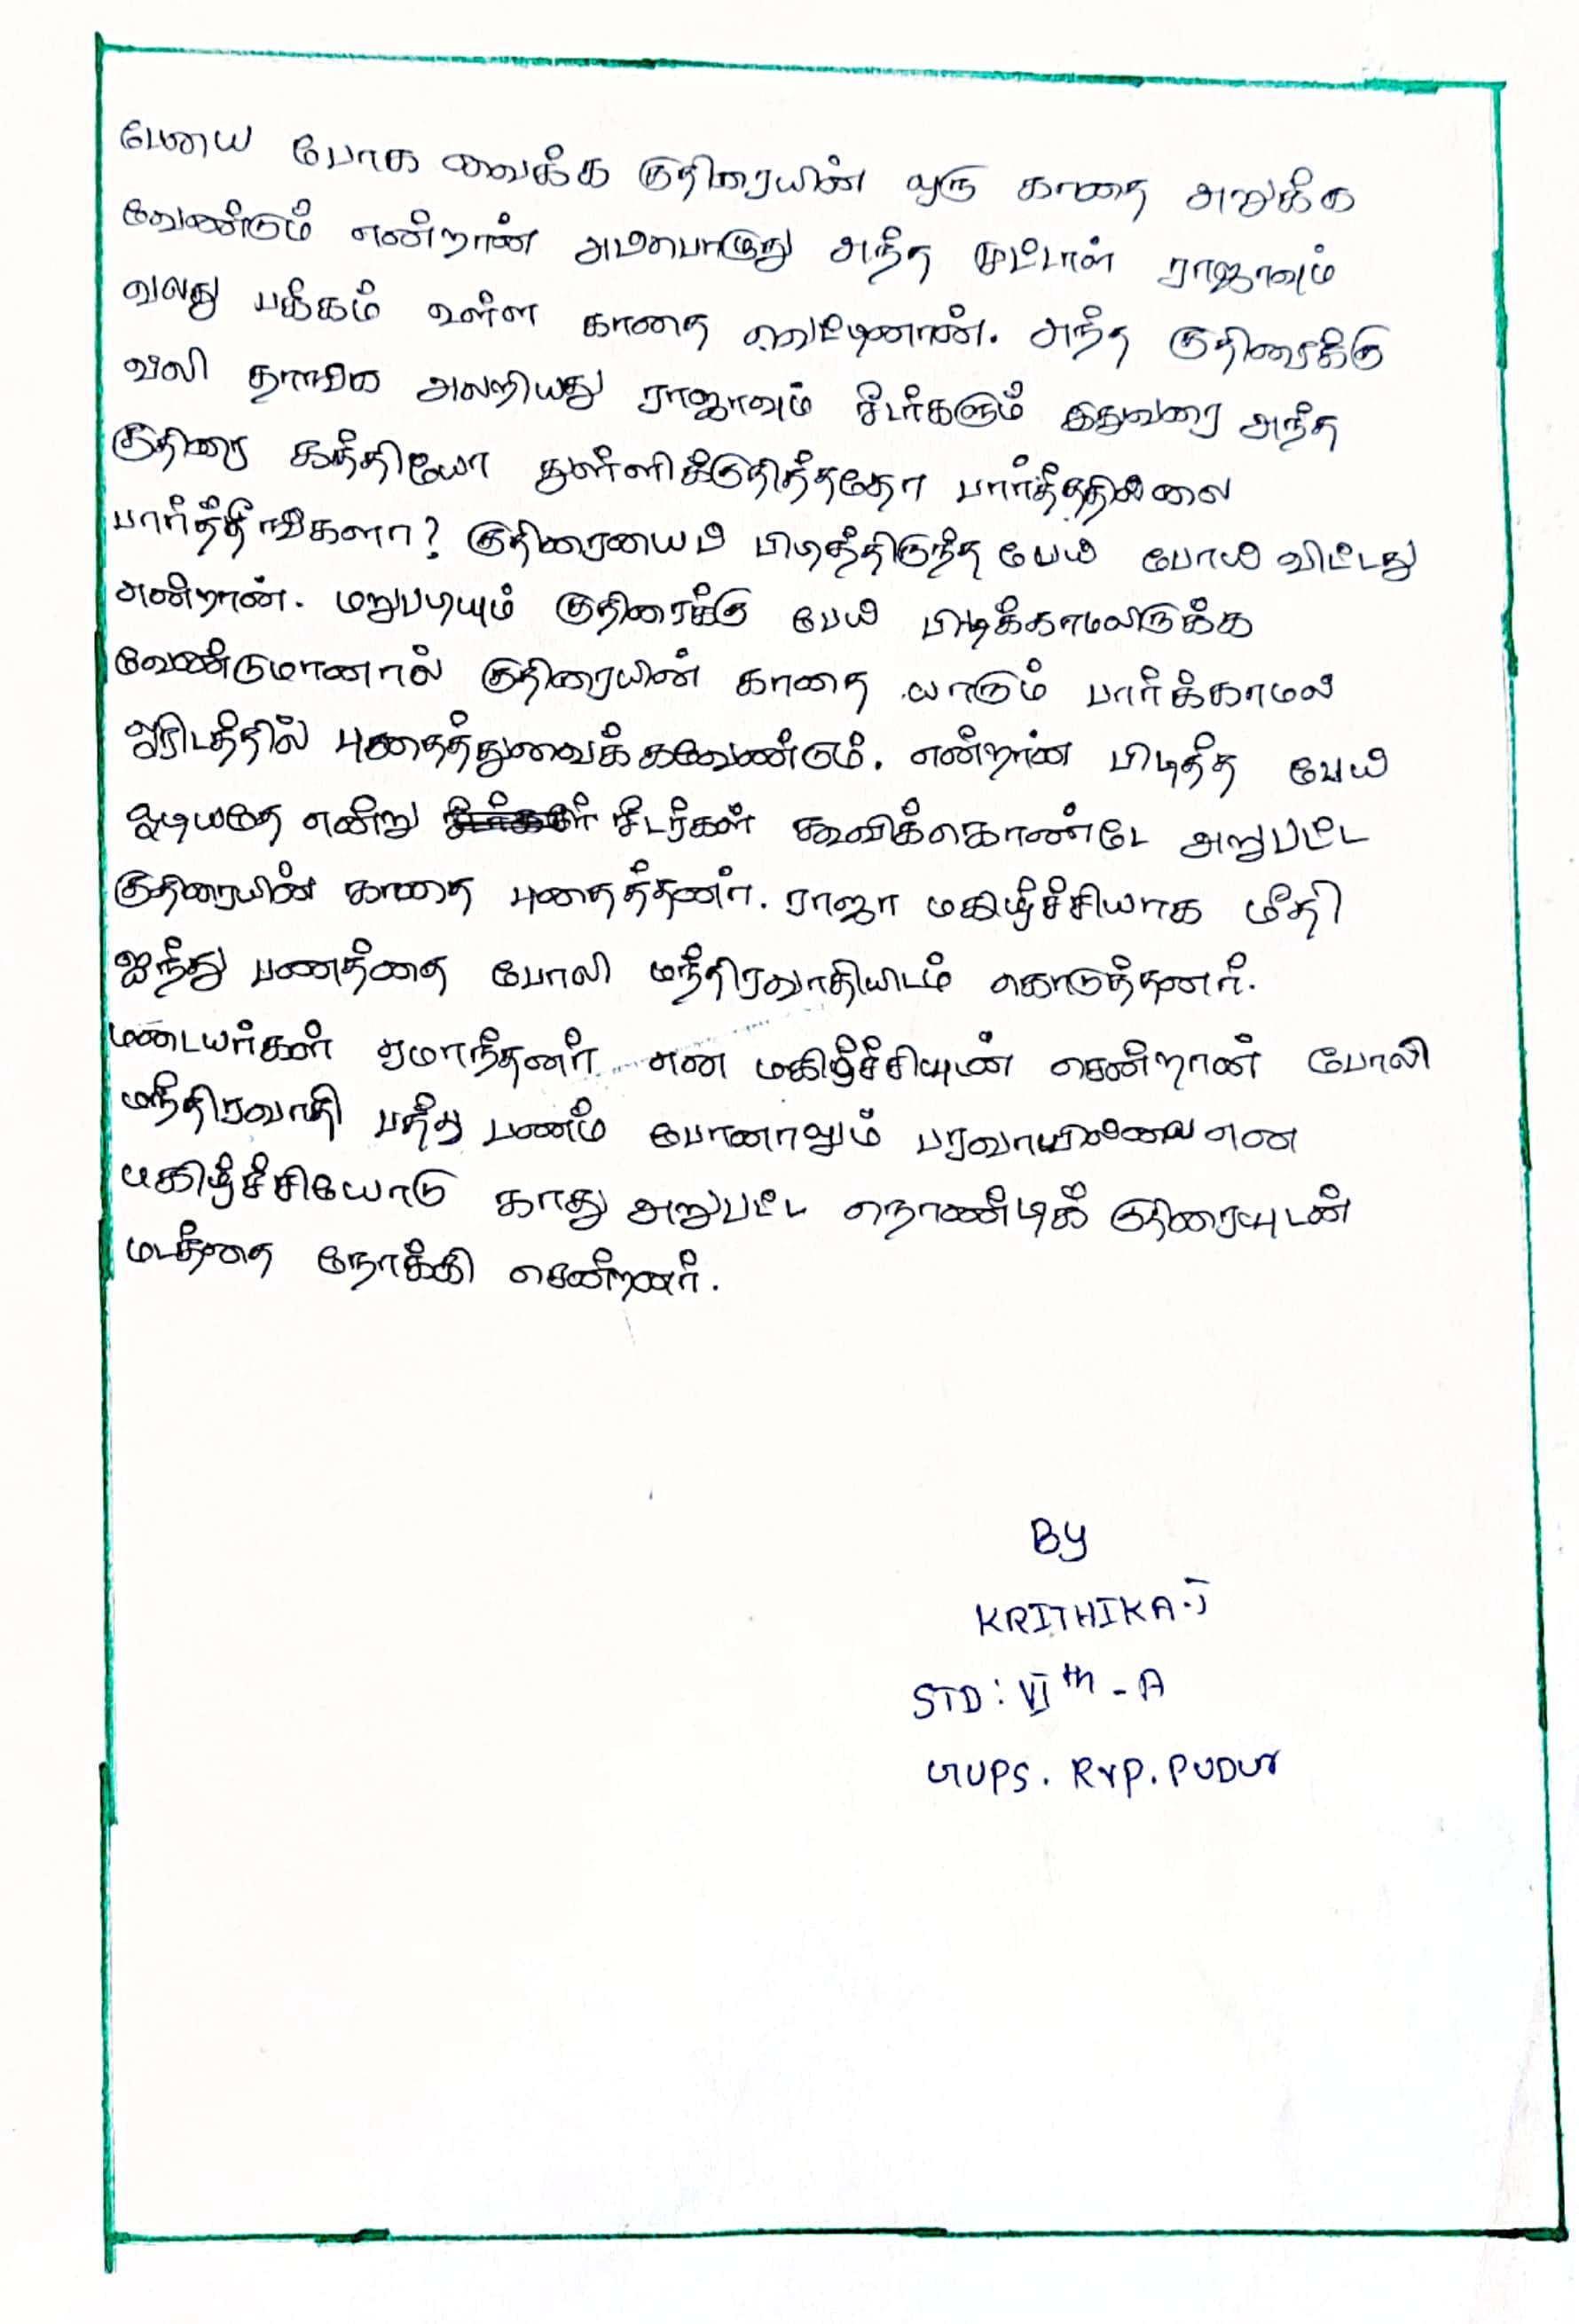 பேயை போக வைக்க குதிரையின் ஒரு காதை அறுக்க
வேண்டும் என்றான் அப்பொழுது அந்த முட்டாள் ராஜாவும்
வலது பக்கம் உள்ள காதை வெட்டினான். அந்த குதிரைக்கு
வலி தாங்க அலறியது ராஜாவும் சீடர்களும் இதுவரை அந்த
குதிரை கத்தியோ துள்ளிக்குதித்ததோ பார்த்ததில்லை
பார்த்தீங்களா? குதிரையைப் பிடித்திருந்த பேய் போய் விட்டது
என்றான். மறுபடியும் குதிரைக்கு பேய் பிடிக்காமலிருக்க
வேண்டுமானால் குதிரையின் காதை யாரும் பார்க்காமல்
ஓரிடத்தில் புதைத்துவைக்கவேண்டும். என்றான் பிடித்த பேய்
ஓடியதே என்று சீடர்கள் கூவிக்கொண்டே அறுபட்ட
குதிரையின் காதை புதைத்தனர். ராஜா மகிழ்ச்சியாக மீதி
ஐந்து பணத்தை போலி மந்திரவாதியிடம் கொடுத்தனர்.
மடையர்கள் ஏமாந்தனர் என மகிழ்ச்சியுடன் சென்றான் போலி
மந்திரவாதி பத்து பணம் போனாலும் பரவாயில்லை என
மகிழ்ச்சியோடு காது அறுபட்ட நொண்டிக் குதிரையுடன்
மடத்தை நோக்கி சென்றனர்.
By
KRITHIKA.J
STD: VI th - A
GUPS. RVP. PUDUR